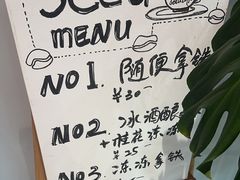 MENU
NO1. 随便拿铁
¥30
NO2. 冰酒酿
+桂花冻冻
¥25
NO3. 冻冻拿铁